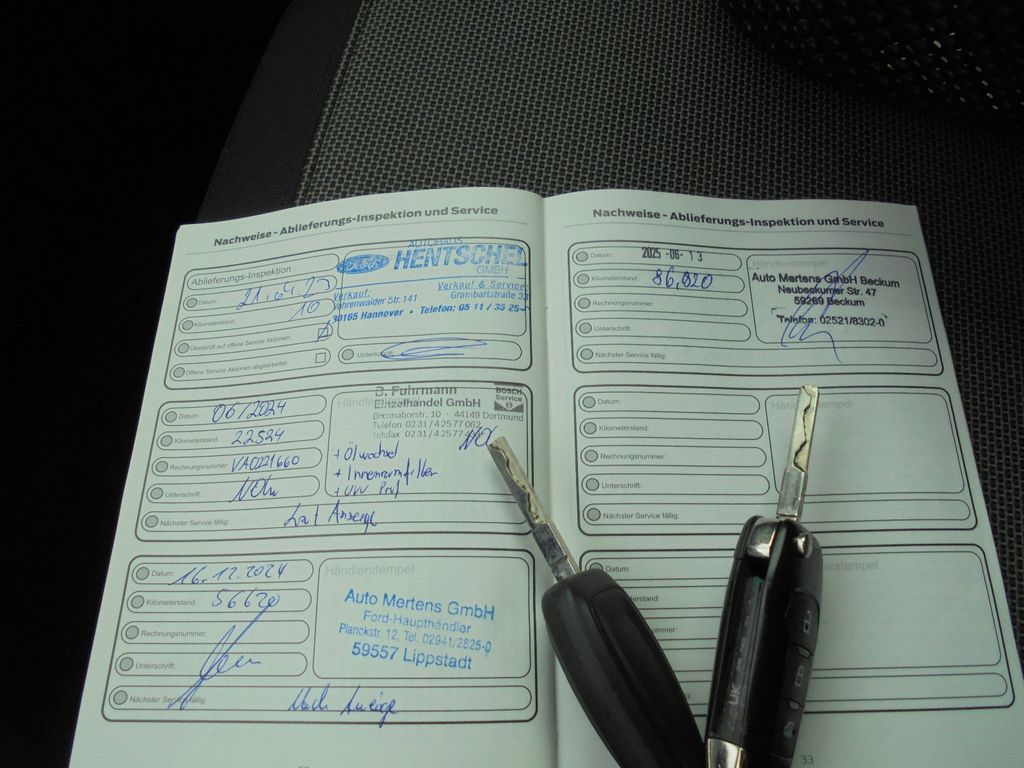 Nachweise - Ablieferungs-Inspektion und Service
Ablieferungs-Inspektion
Datum: 21.04.23
Kilometerstand: 10
Überprüft auf offene Service Aktionen:
Offene Service Aktionen abgearbeitet:
AUTOHAUS
Ford HENTSCHEL
GMBH
Verkauf: Verkauf & Service
Vahrenwalder Str. 141 Grambartstraße 33
30165 Hannover • Telefon: 05 11 / 35 25-
Unterschrift:
Datum: 06/2024
Kilometerstand: 22524
Rechnungsnummer: VA0221660
Unterschrift:
Nächster Service fällig: Laut Anzeige
B. Fuhrmann
Einzelhandel GmbH
Brennaborstr. 10 · 44149 Dortmund
Telefon 0231/42577062
Telefax 0231/42577
BOSCH
Service
+ Ölwechsel
+ Innenraumfilter
+ UVV Prüf
Datum: 16.12.2024
Kilometerstand: 56620
Rechnungsnummer:
Unterschrift:
Nächster Service fällig: Nach Anzeige
Händlerstempel
Auto Mertens GmbH
Ford-Haupthändler
Planckstr. 12, Tel. 02941/2825-0
59557 Lippstadt
Nachweise - Ablieferungs-Inspektion und Service
Datum: 2025 -06- 13
Kilometerstand: 86.920
Rechnungsnummer:
Unterschrift:
Nächster Service fällig:
Händlerstempel
Auto Mertens GmbH Beckum
Neubeckumer Str. 47
59269 Beckum
Telefon: 02521/8302-0
Datum:
Kilometerstand:
Rechnungsnummer:
Unterschrift:
Nächster Service fällig:
Händlerstempel
Datum:
33